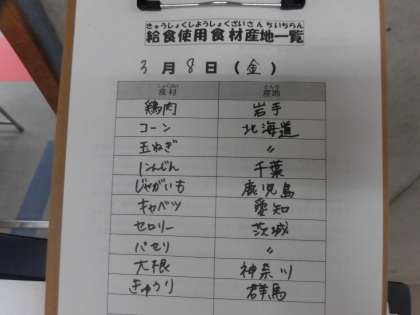 きゅうしょくしようしょくざいさんちいちらん
給食使用食材産地一覧
3月8日(金)
産地
鶏肉 岩手
コーン 北海道
玉ねぎ 〃
にんじん 千葉
じゃがいも 鹿児島
キャベツ 愛知
セロリー 茨城
パセリ 〃
大根 神奈川
きゅうり 群馬